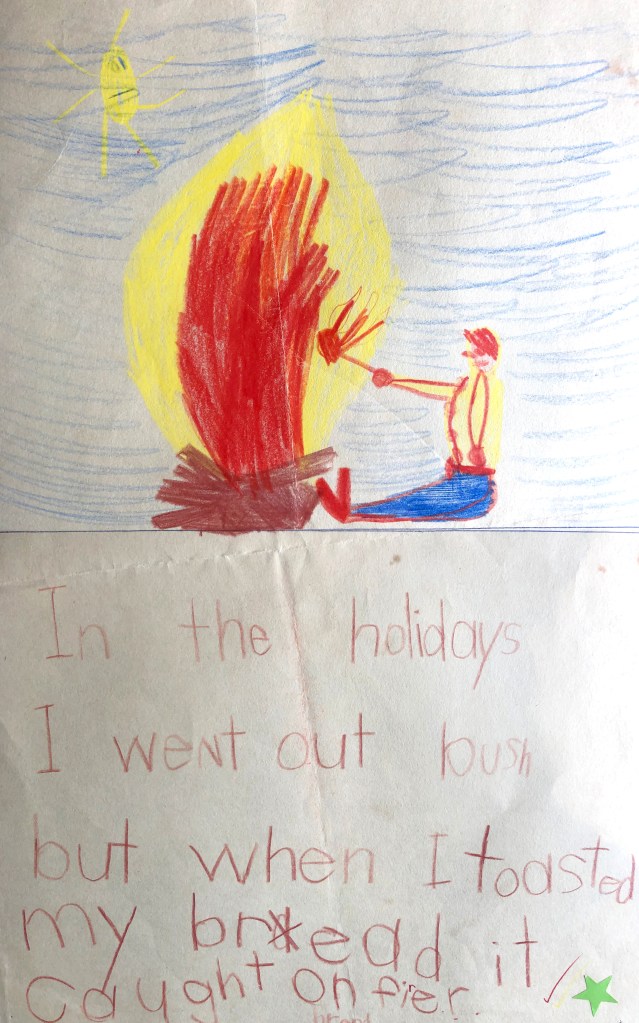 In the holidays
I went out bush
but when I toasted
my bread it
caught on fier